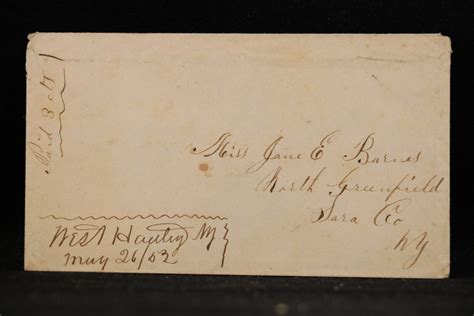 Paid 3 cts
Miss Jane E Barnes
North Greenfield
Sara Co
NY
West
May 26/52